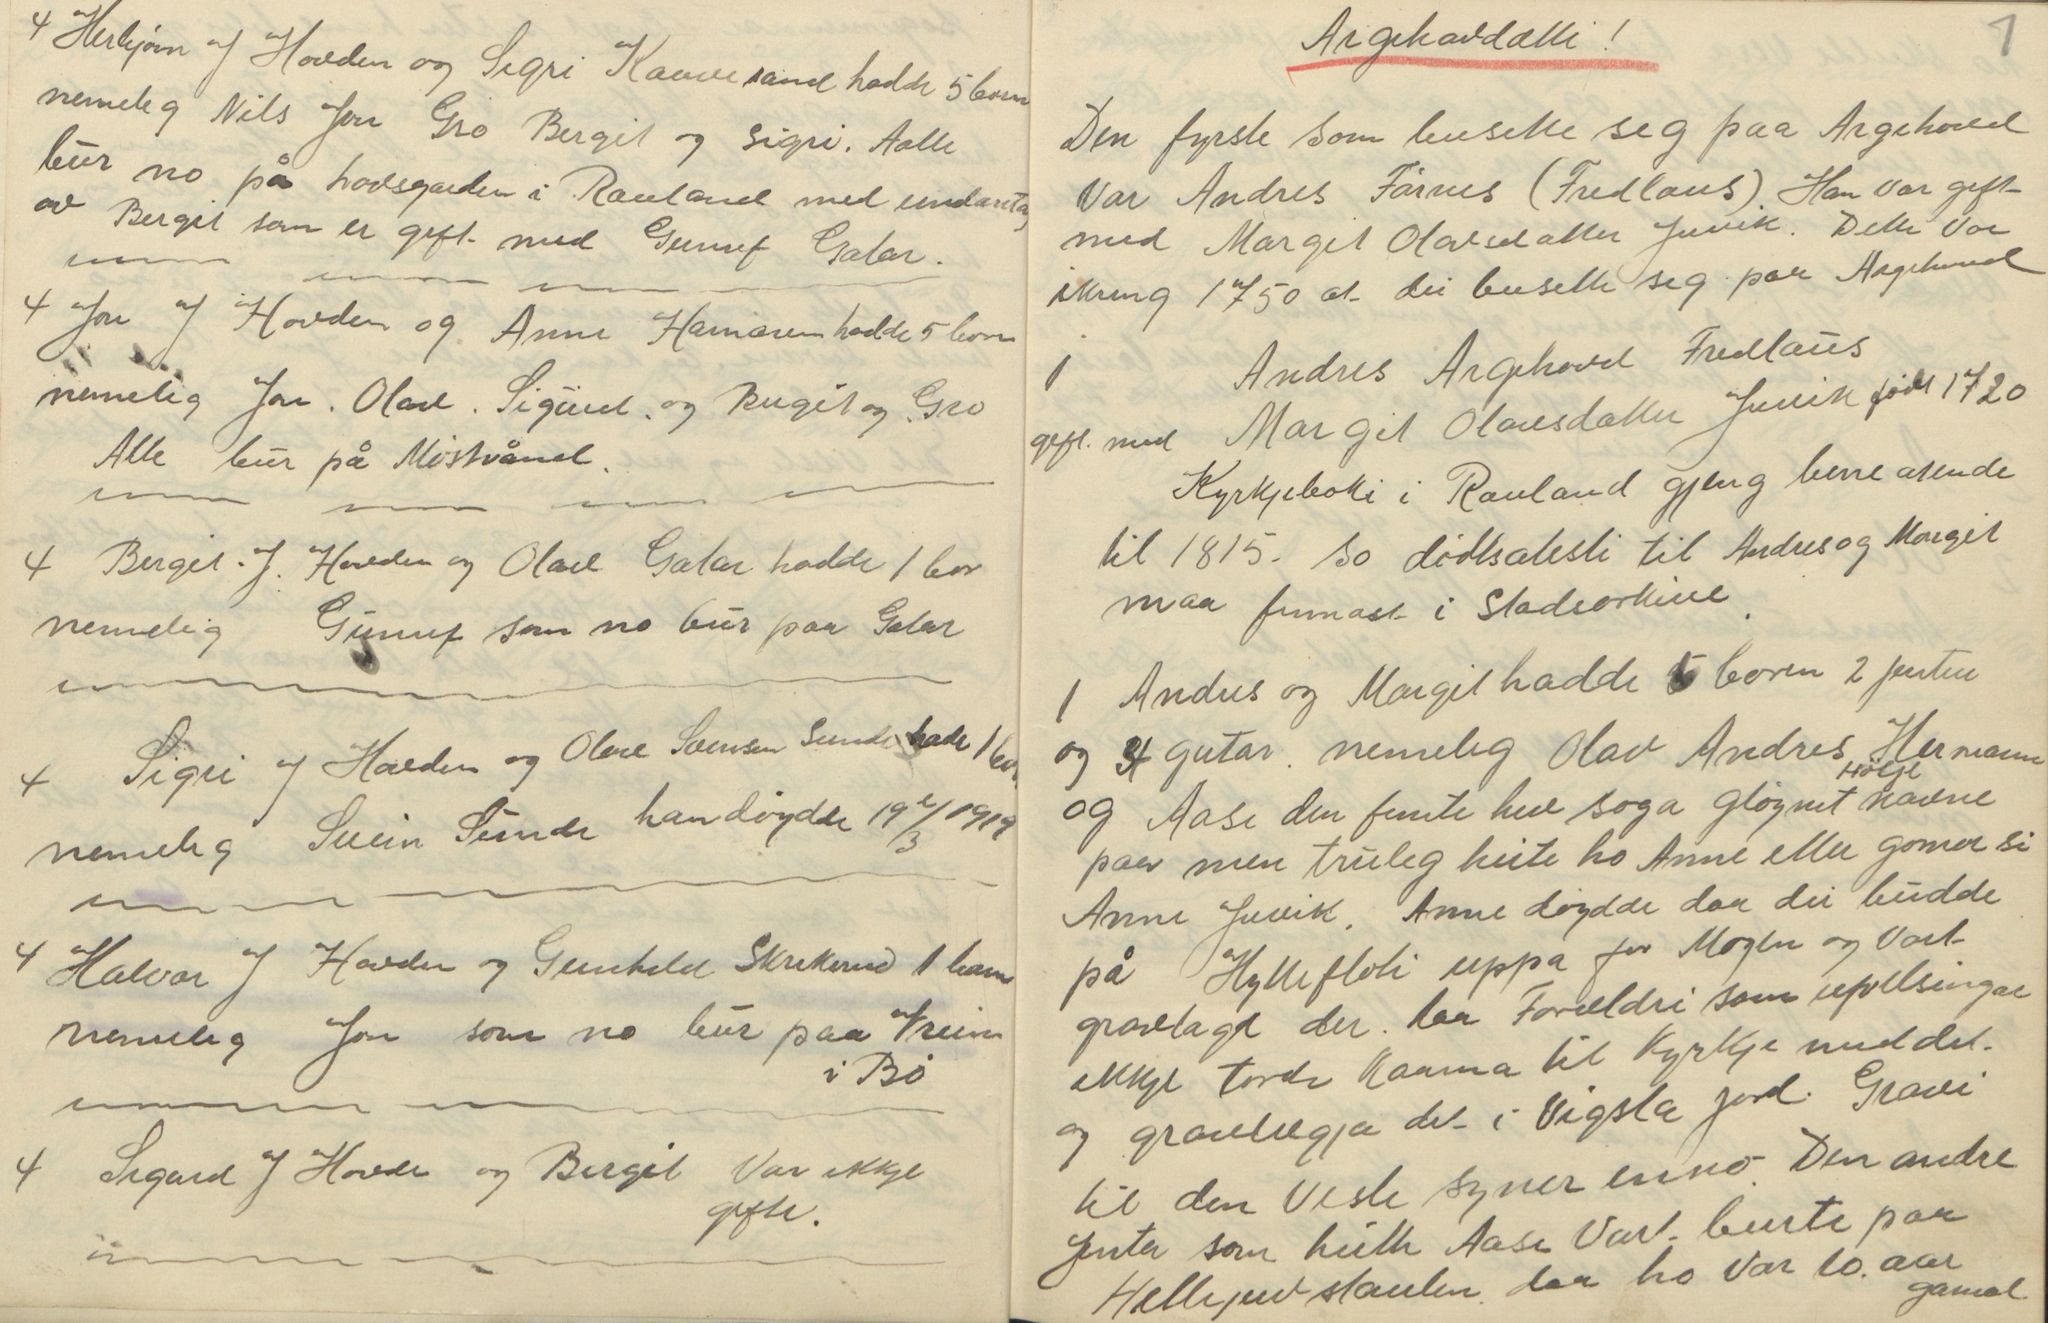 4 Herbjørn J Hovden og Sigri Kaavesand hadde 5 born
nemeleg Nils Jon Gro Bergit og Sigri. Aalle
bur no på hovsgarden i Rauland med undantag
av Bergit som er gift med Gunuf Galar.
4 Jon J Hovden og Anne Hamaren hadde 5 born
nemelig Jon. Olav. Sigurd. og Bergit og Gro
Alle bur på Møsvånd.
4 Bergit. J. Hovden og Olav Galar hadde 1 bor
nemelig Gunuf som no bur paa Galar
4 Sigri J Hovden og Olav Sveinsen Sunde hade 1 bor
nemeleg Svein Sunde han døydde 19 /3 1919
4 Halvor J Hovden og Gunhild Skrikerud 1 barn
nemeleg Jon som no bur paa Vreim
i Bø
4 Sigurd J Hovde og Bergit Var ikkje
gifte.
1
Argehovdætti!
Den fyrste som busette seg paa Argehovd
Var Andres Fårnes (Fredlaus). Han var gift
med Margit Olavsdatter Juvik. Dette Var
ikring 1750 at dei busette seg paa Argehovd
1 Andres Argehovd Fredlaus
gift. med Margit Olavsdatter Juvik født 1720
Kyrkjeboki i Rauland gjeng berre atende
til 1815. so dødsatesti til Andres og Margit
maa finnast i Stadsarkive.
1 Andres og Margit hadde 5 born 2 jentur
og 4 gutar. nemeleg Olav Andres Hermann
Hølje
og Aase den femte hev soga gløymt navne
paa men truleg heite ho Anne etter gomor si
Anne Juvik. Anne døydde daa dei budde
på Hyllefloti uppa for Mogen og Vart
gravlagd der. daa Foreldri som uvelsingar
ikkje torde kaama til Kyrkje med det.
og gravleggja det i Vigsla jord. Gravi
til den Vesle syner enno. Den andre
Jenta som heitte Aase Vart burte paa
daa ho Var 10. aar
gamal